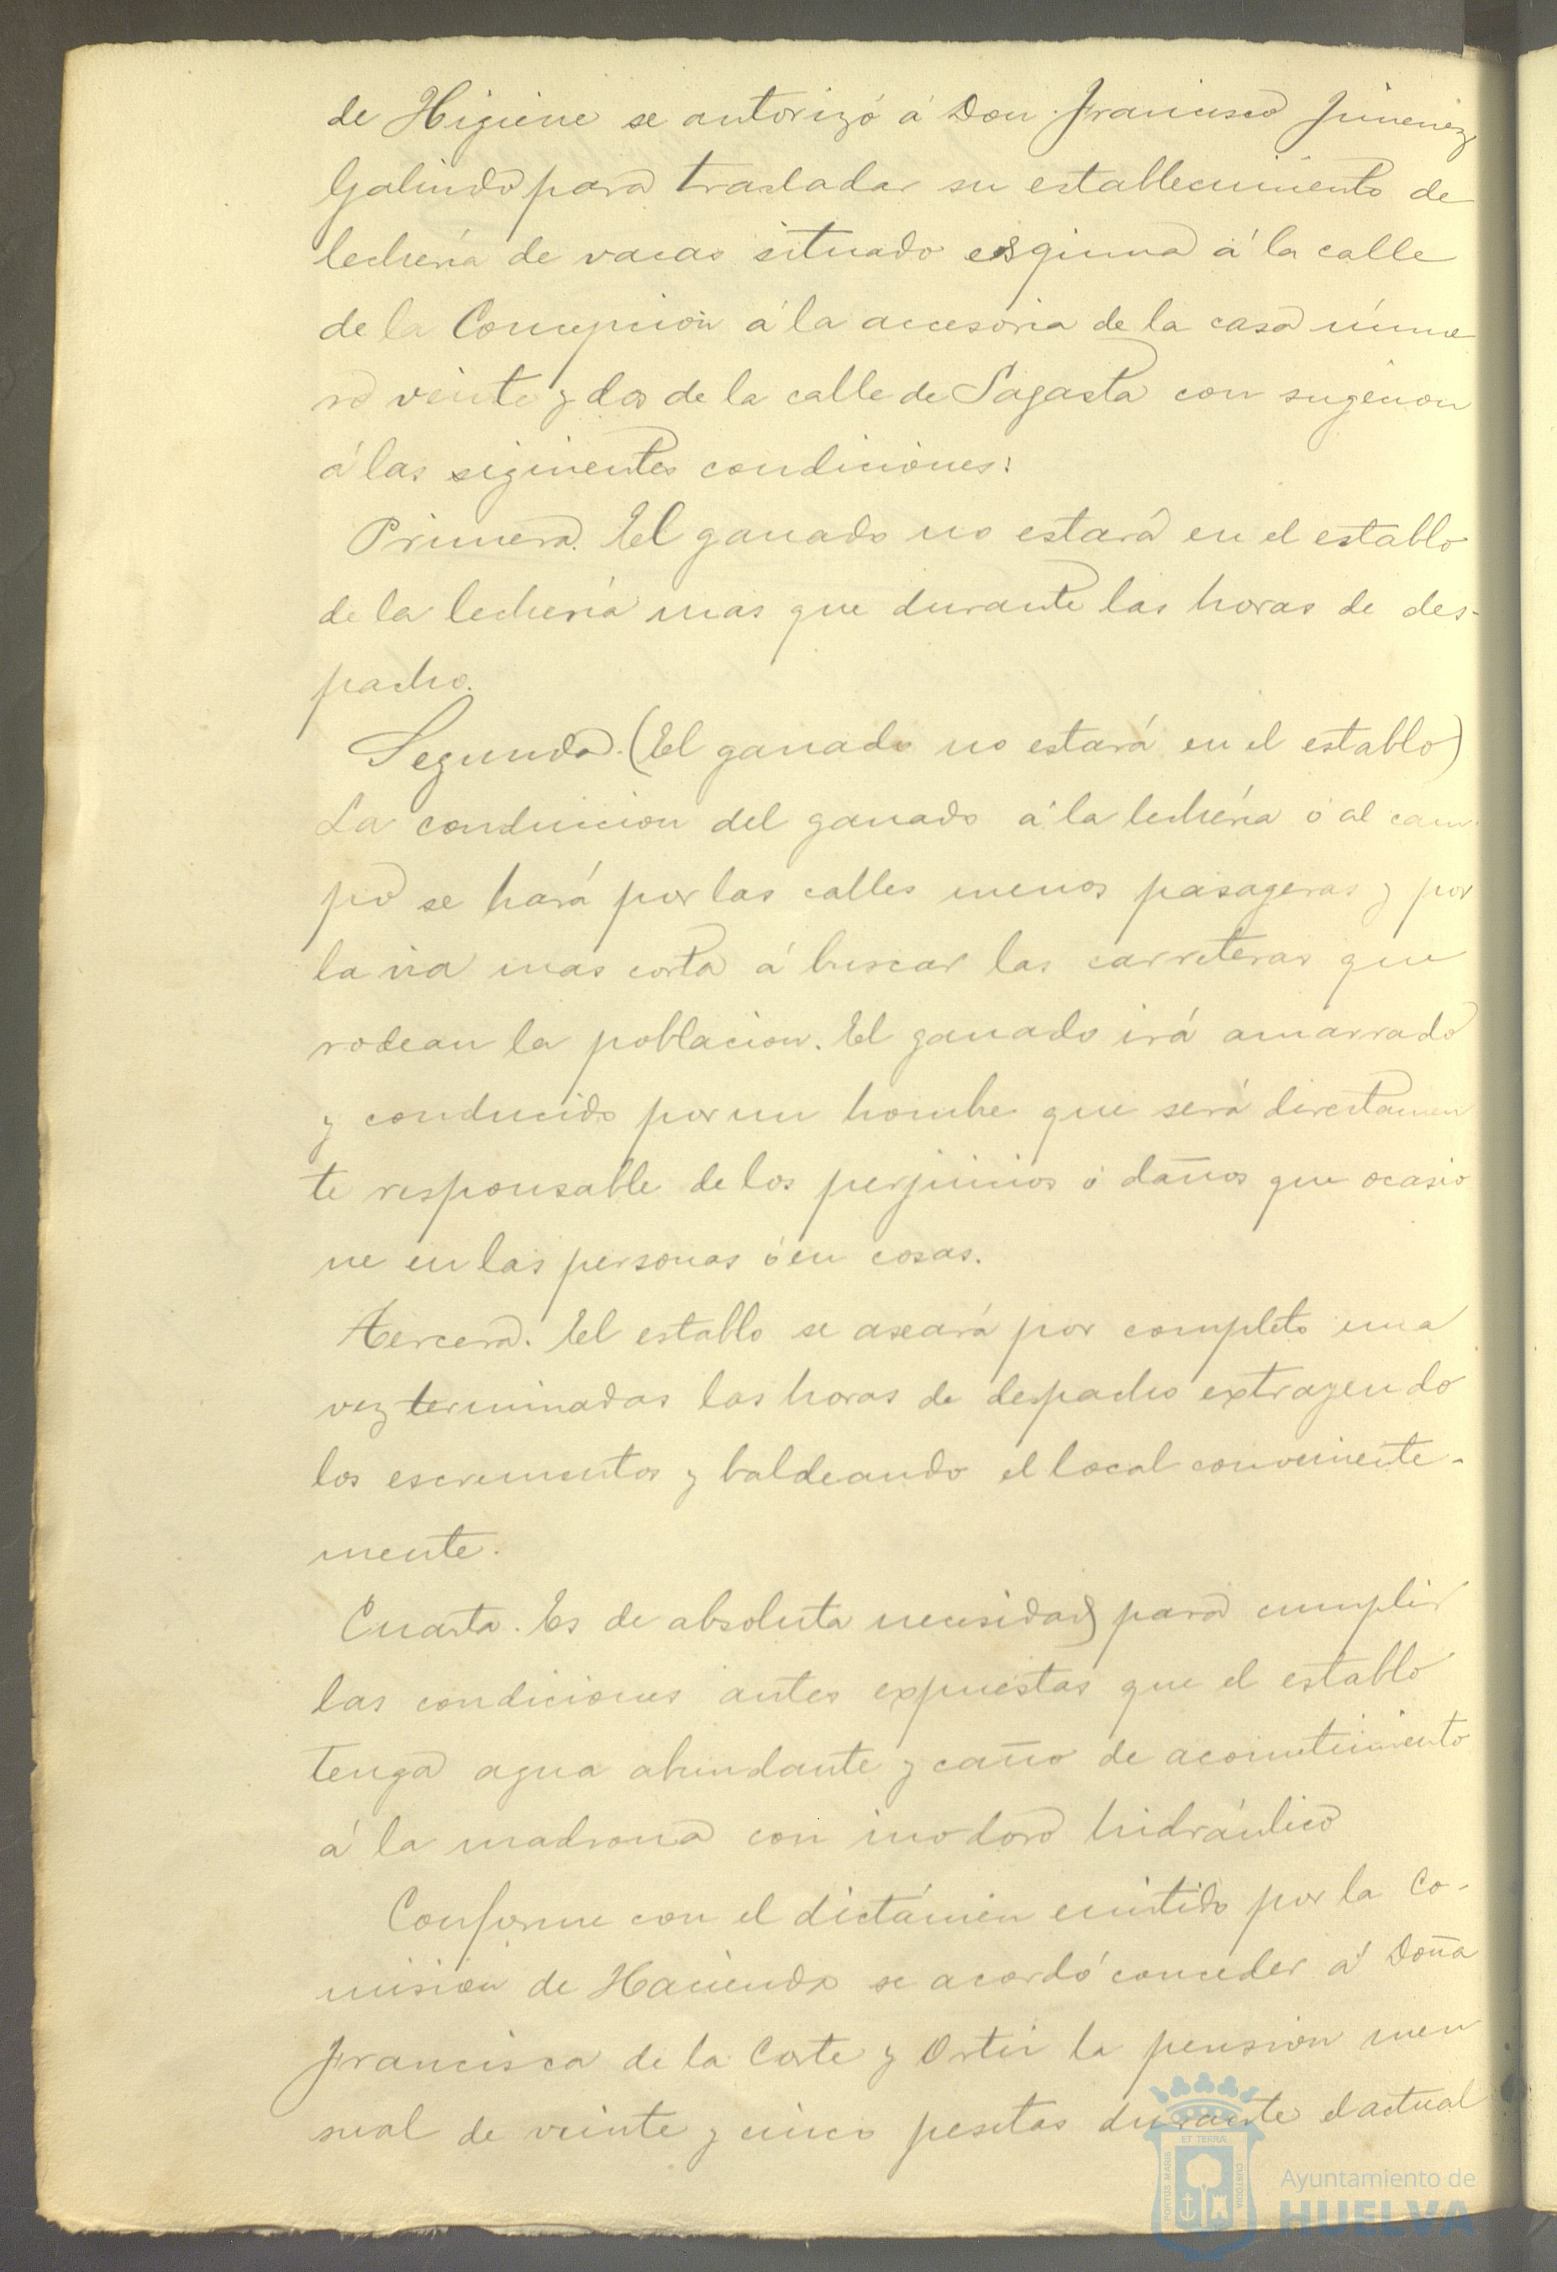 de Higiene se autorizó á Don Francisco Jimenez
Galindo para trasladar su establecimiento de
lechería de vacas situado esquina á la calle
de la Concepción á la accesoria de la casa núme
ro veinte y dos de la calle de Sagasta con sugecion
á las siguientes condiciones:
Primera. El ganado no estará en el establo
de la lechería mas que durante las horas de des-
pacho.
Segunda. (El ganado no estará en el establo)
La conduccion del ganado á la lechería ó al cam-
po se hará por las calles menos pasageras y por
la via mas corta á buscar las carreteras que
rodean la poblacion. El ganado irá amarrado
y conducido por un hombre que será directamen
te responsable de los perjuicios ó daños que ocasio
ne en las personas ó en cosas.
Tercera. El establo se aseará por completo una
vez terminadas las horas de despacho extrayendo
los escrementos y baldeando el local conveniente-
mente.
Cuarta. Es de absoluta necesidad para cumplir
las condiciones antes expuestas que el establo
tenga agua abundante y caño de acometimiento
á la madrona con inodoro hidráulico
Conforme con el dictámen emitido por la Co-
mision de Hacienda se acordó conceder á Doña
Francisca de la Corte y Ortiz la pension men
sual de veinte y cinco pesetas durante el actual
ET TERRAE
PORTUS MARIS
CUSTODIA
Ayuntamiento de
HUELVA